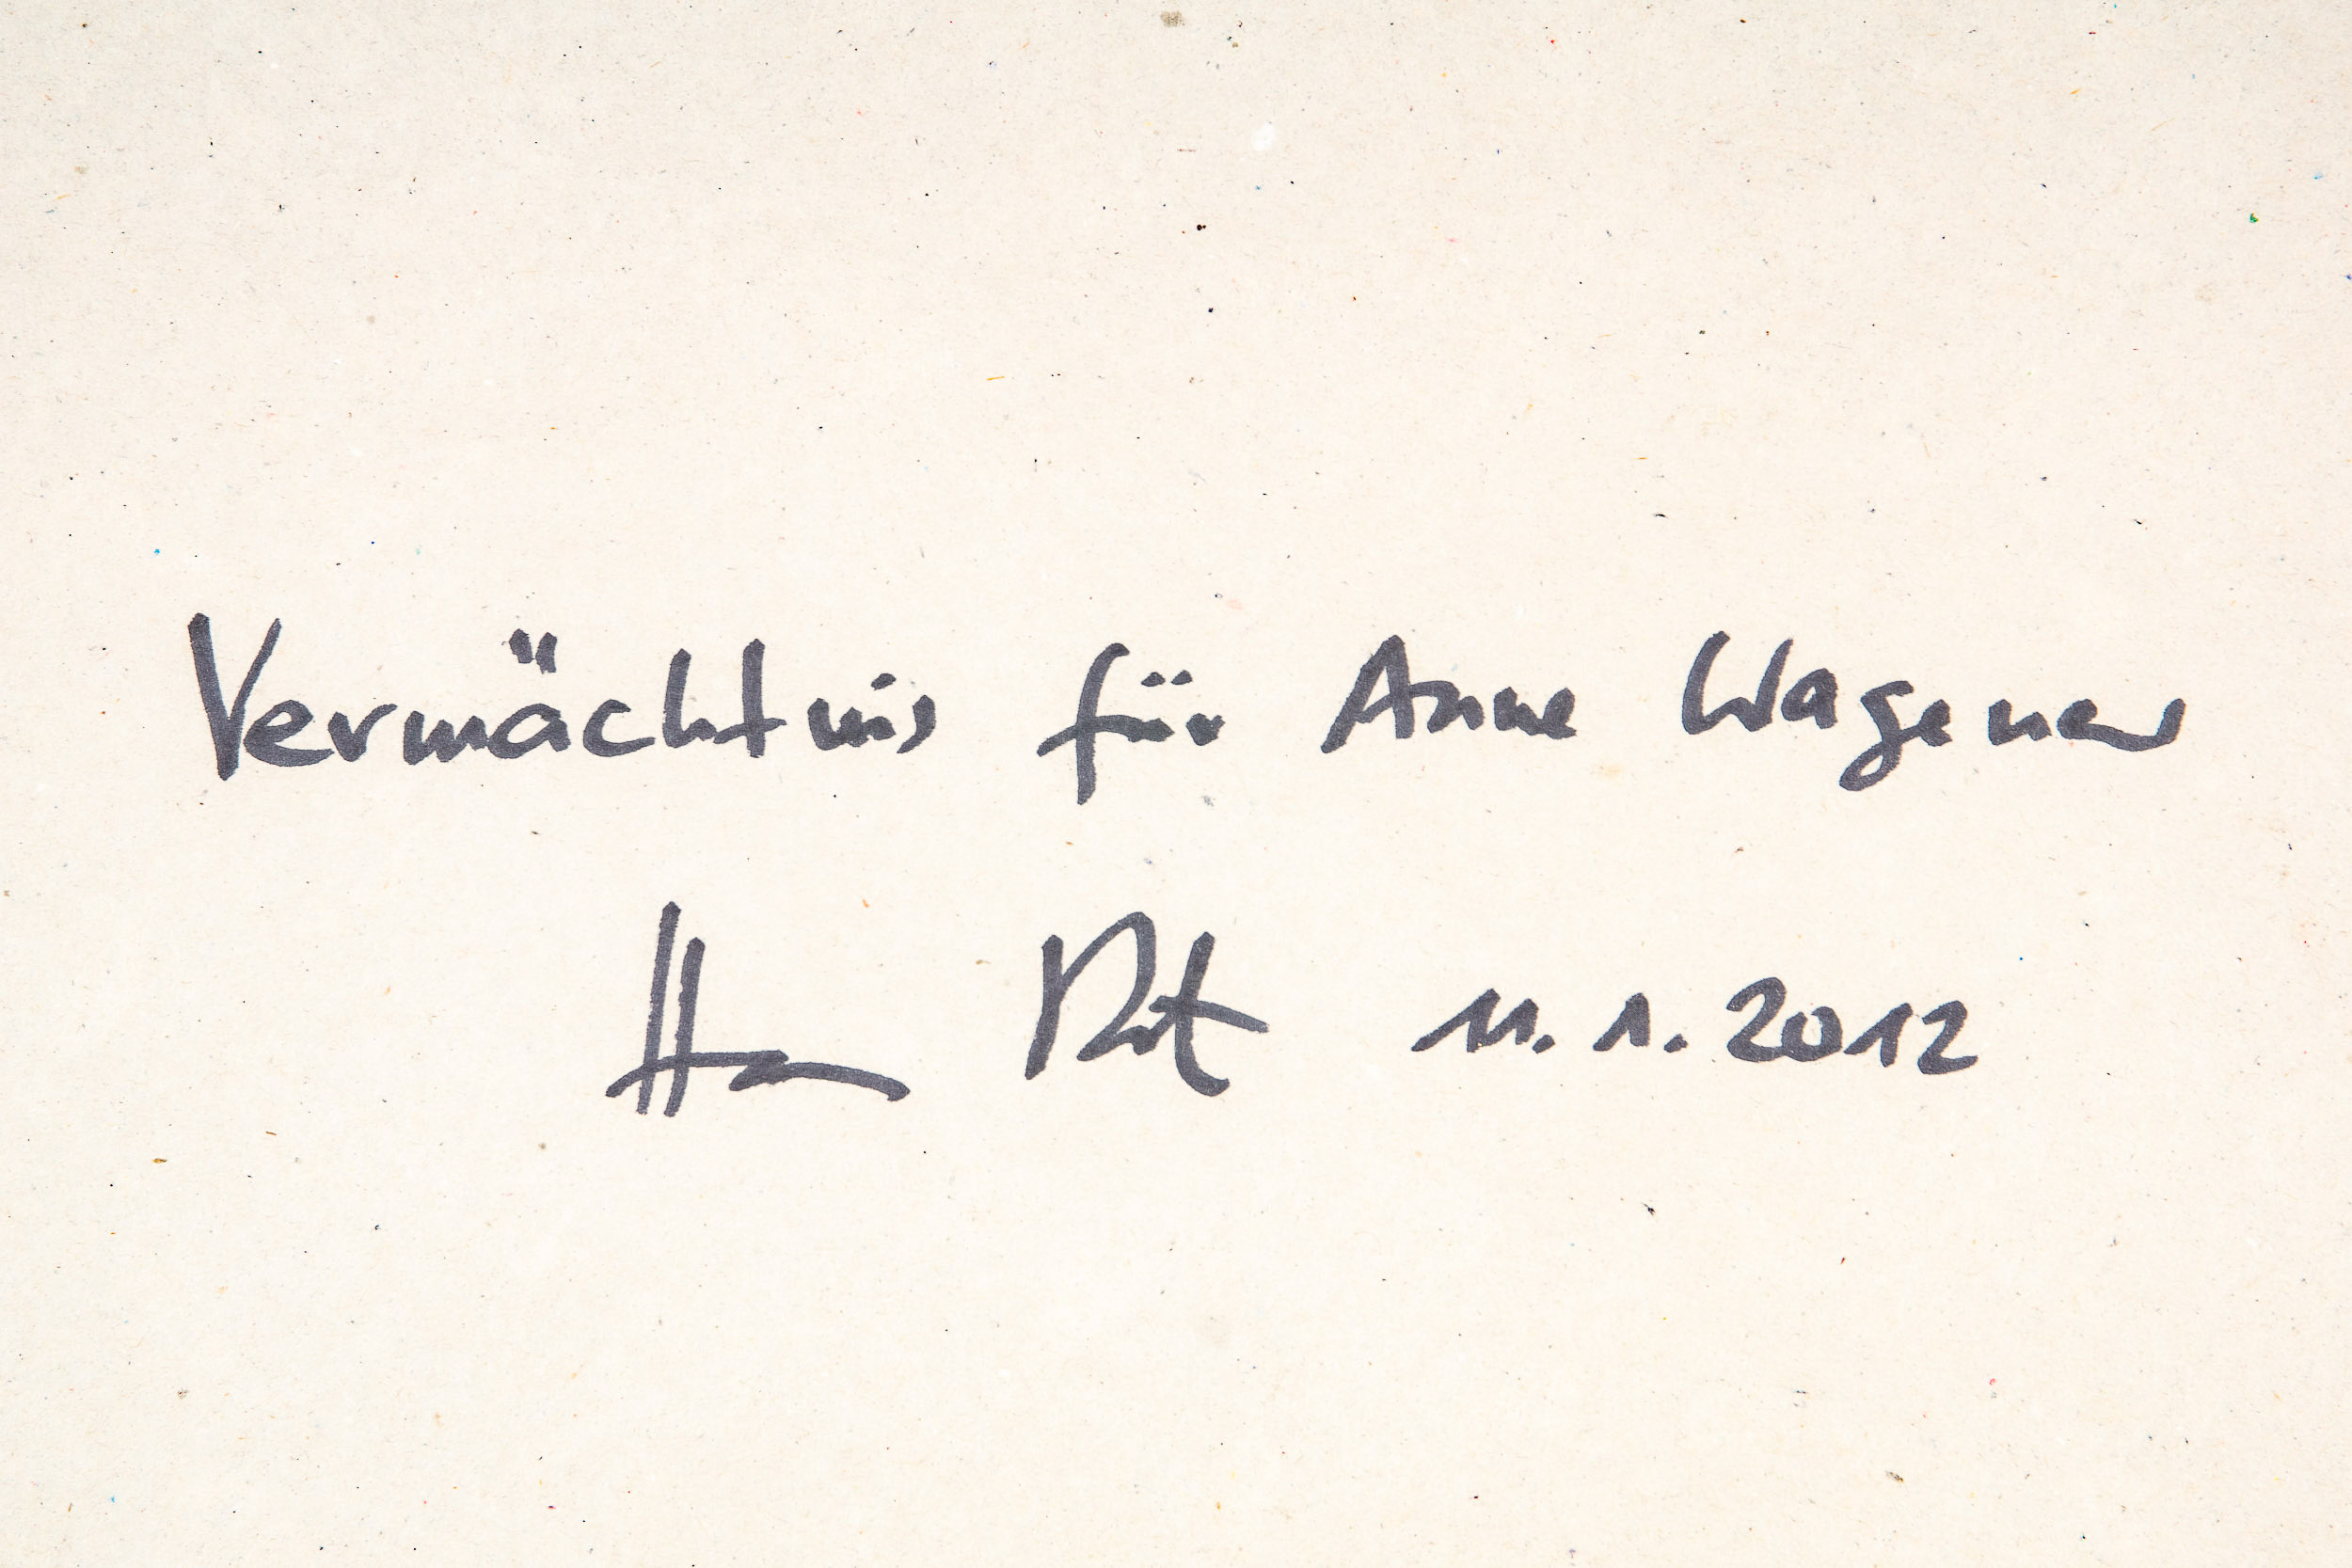 Vermächtnis für Anne Wagener
11. 1. 2012